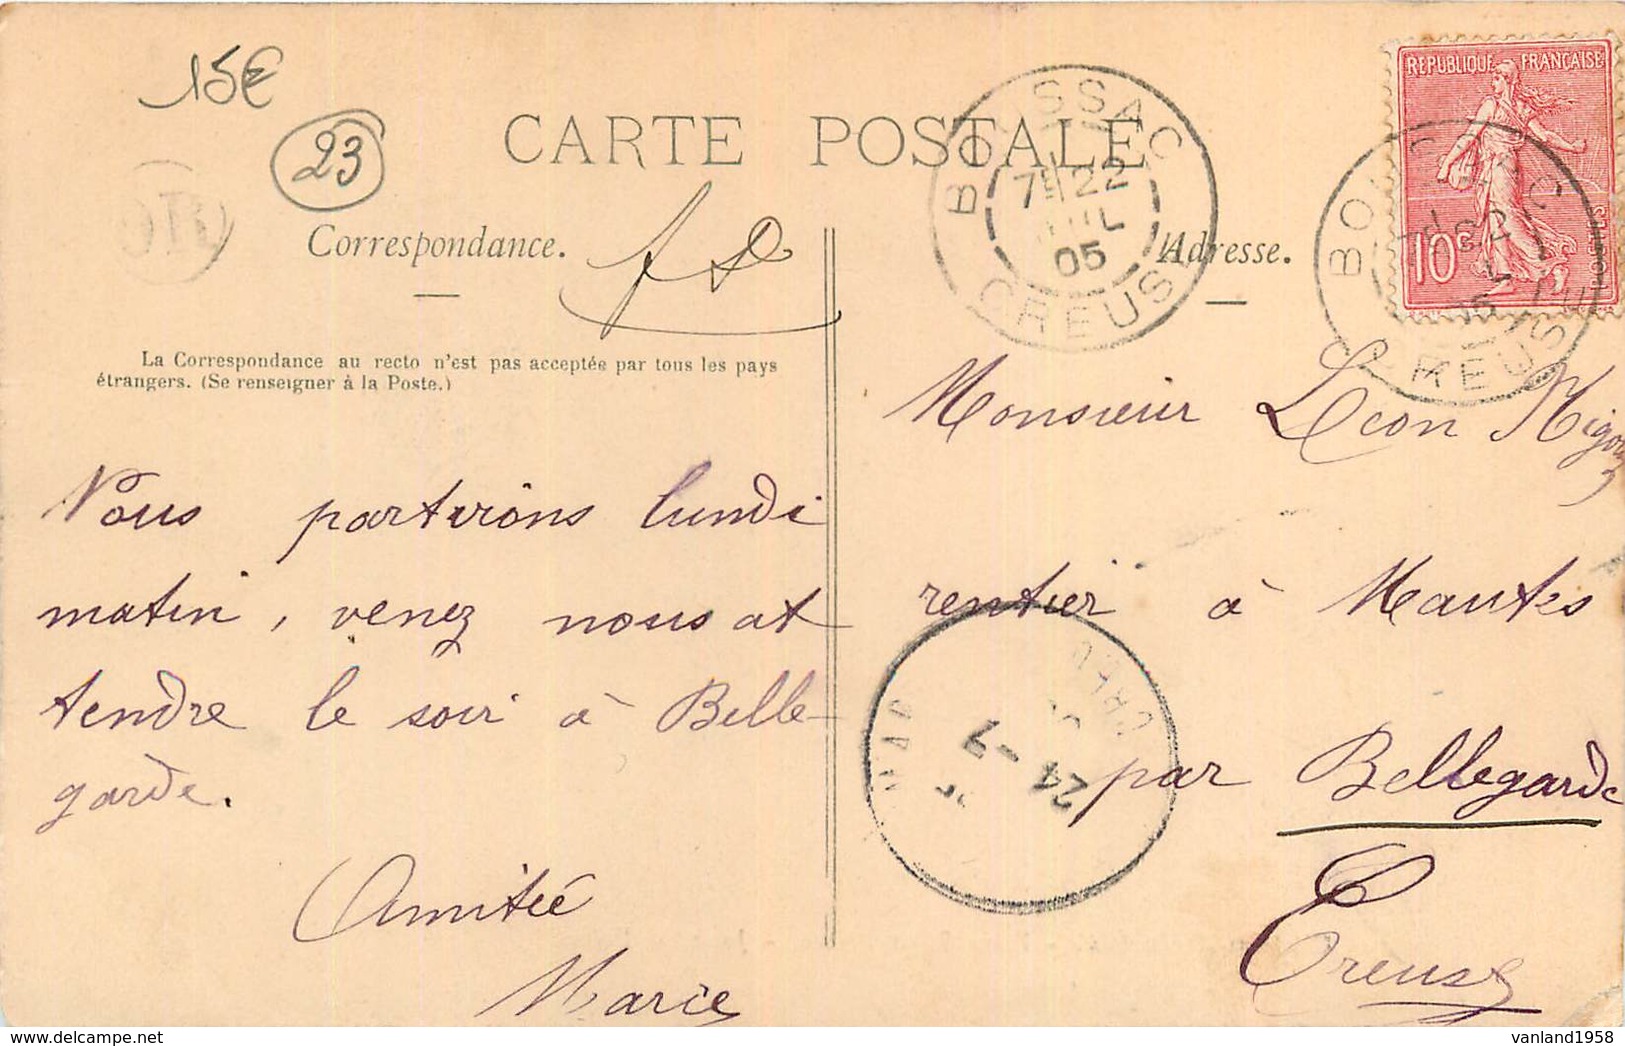 15€
23
CARTE POSTALE
BOUSSAC
7E 22
JUIL
05
CREUSE
REPUBLIQUE FRANÇAISE
10c
POSTES
Correspondance.
Adresse.
La Correspondance au recto n'est pas acceptée par tous les pays
étrangers. (Se renseigner à la Poste.)
Nous partirons lundi
matin, venez nous at
tendre le soir à Belle-
garde.
Amitié
Marie
Monsieur Léon
rentier à Mautes
par Bellegarde
Creuse
24 -7
vanland1958